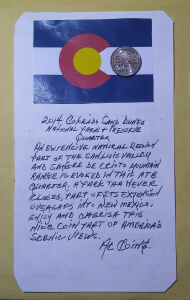 2014 COLORADO SAND DUNES
NATIONAL PARK & PRESERVE
QUARTER
AN EXTENSIVE NATURAL REGION
PART OF THE SAN LUIS VALLEY
AND SANGRE DE CRISTO MOUNTAIN
RANGE IS EVOKED IN THIS ATB
QUARTER. A PARK THA NEVER
CLOSES, PART OF ITS EXTENSION
OVERLAPS INTO NEW MEXICO.
ENJOY AND CHERISH THIS
NICE COIN PART OF AMERICA'S
SCENIC VIEWS.